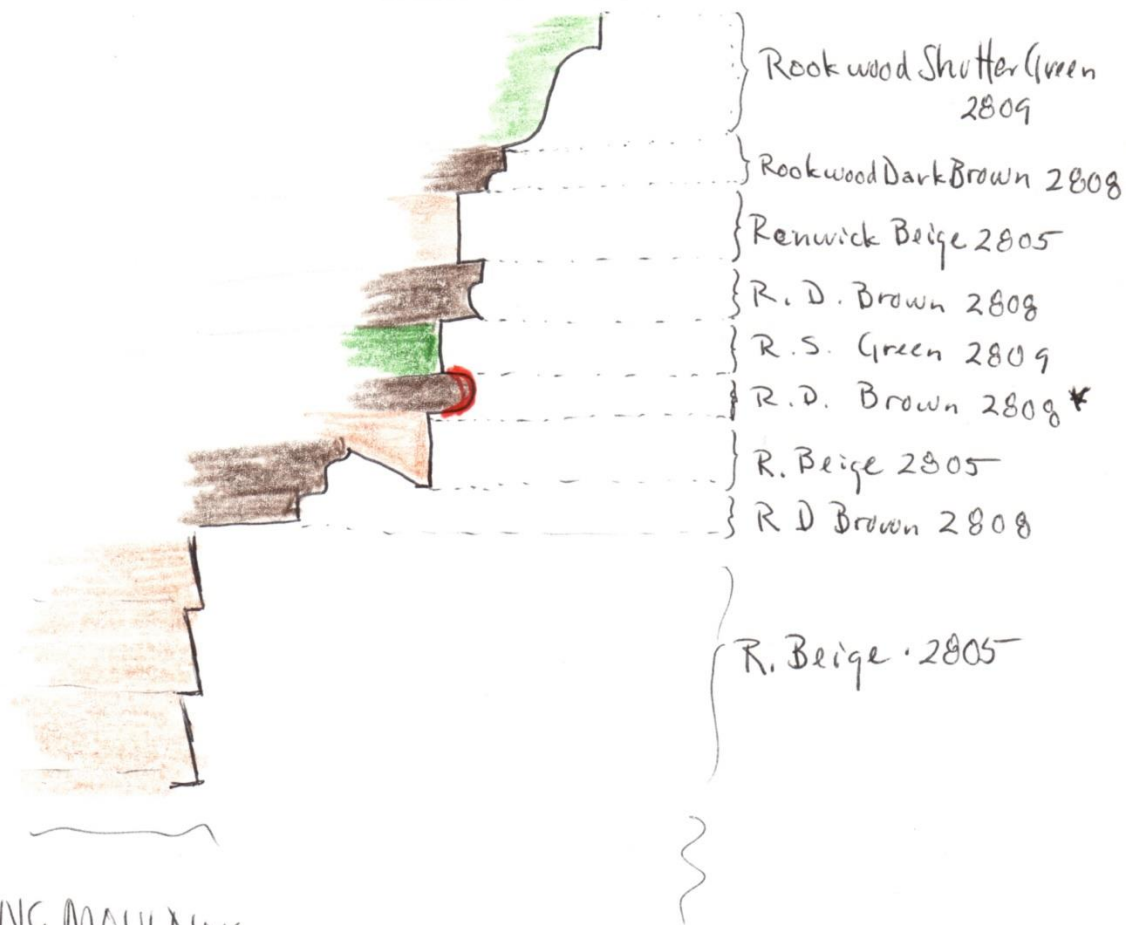 Rookwood Shutter Green
2809
Rookwood Dark Brown 2808
Renwick Beige 2805
R. D. Brown 2808
R. S. Green 2809
R.D. Brown 2808 *
R. Beige 2805
R D Brown 2808
R. Beige · 2805